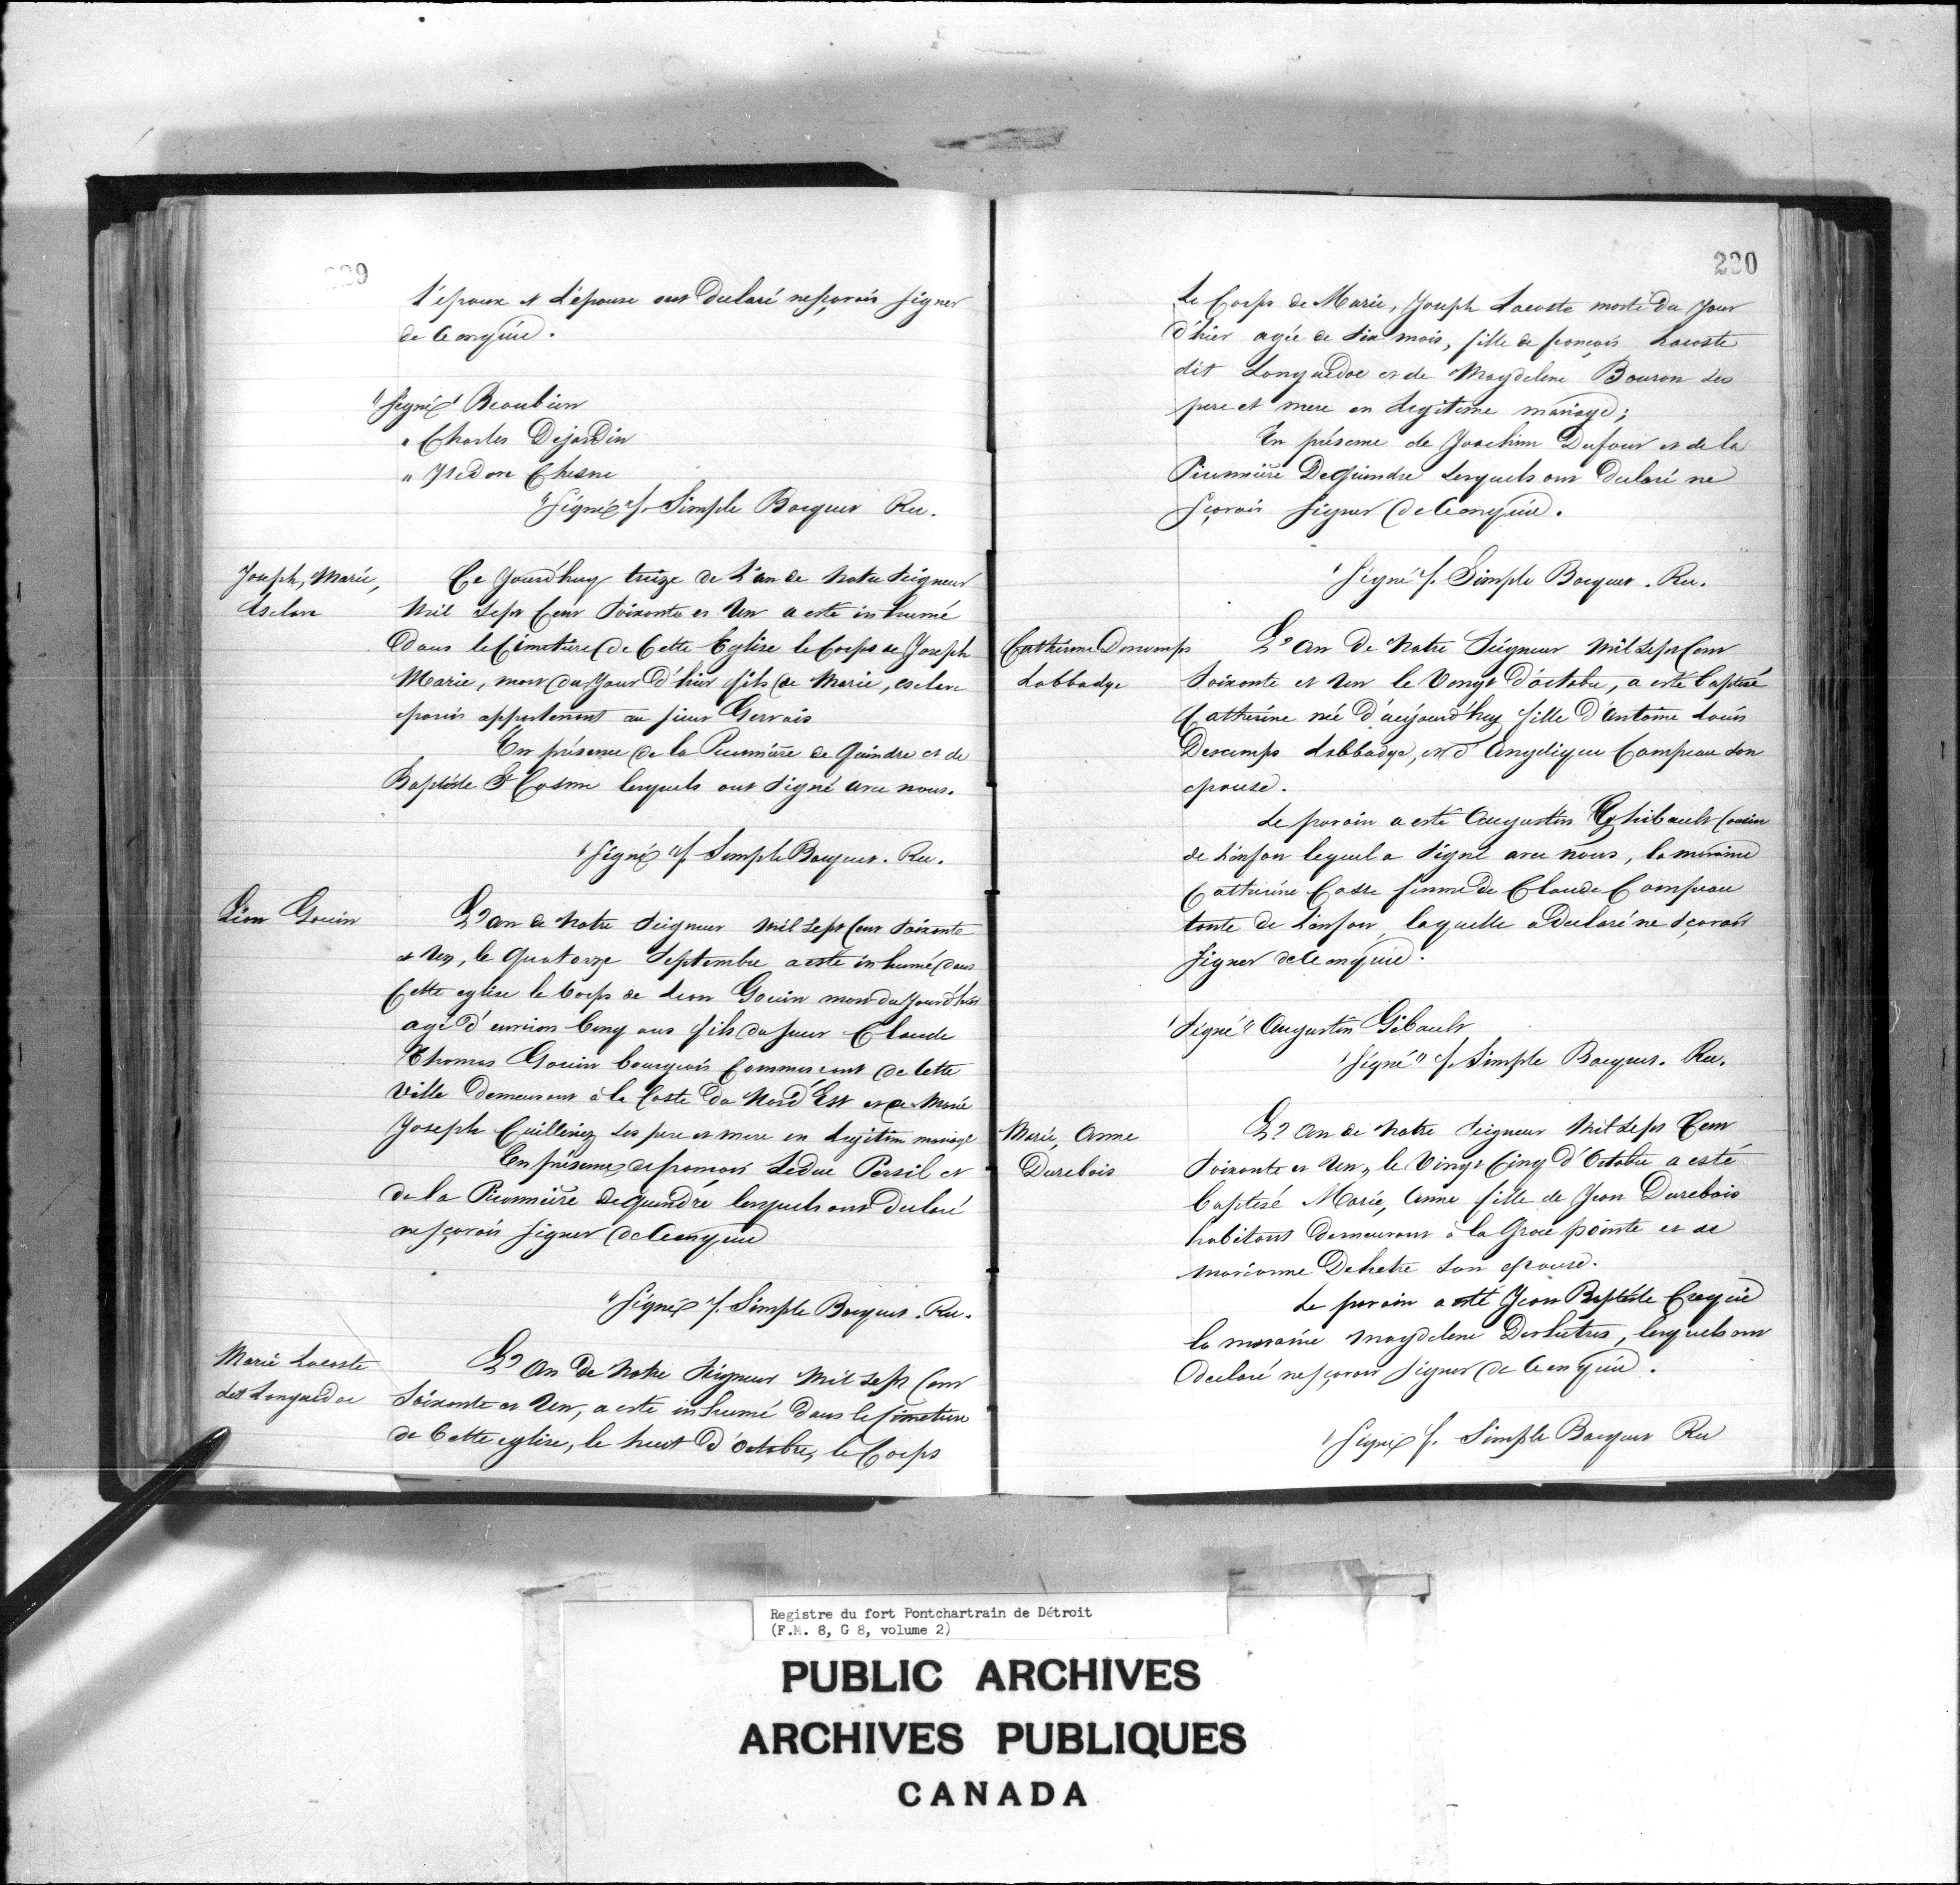 l'epoux et l'épouse ont declaré nesçavoir signer
de ce enquis.
"signé" Beaubien
" Charles Dejardin
" Isidore Chesne
"signé" f. Simple Bocquet Rec.
Joseph, Marie,
esclave
Ce Jourd'huy treize de L'an de Notre Seigneur
Mil Sept Cent Soixante et Un a esté inhumé
Dans le Cimetiere de Cette Eglise le Corps de Joseph
Marie, mort du Jour d'hier fils de Marie, esclave
panis appartenant au sieur Gervais
En présence de la Picanniere de Quindre et de
Baptiste St Cosme lesquels ont signé avec nous.
"signé" f. Simple Bocquet. Rec.
Léon Gouin
L'an de Notre Seigneur Mil Sept Cent Soixante
et Un, le Quatorze Septembre a esté inhumé dans
Cette eglise le Corps de Leon Gouin mort du Jourd'hier
agé d'environ Cinq ans fils du sieur Claude
Thomas Gouin bourgeois Commercant de Cette
Ville Demeurant à la Coste du Nord Est et de Marie
Joseph Cuilleriez ses pere et mere en Legitim mariage
En présence de francois Leduc Persil et
de la Picanniere Dequindre lesquels ont declaré
ne sçavoir signer de ce enquis
"signé" f. Simple Bocquet. Rec.
Marie Lacoste
dit Languedoc
L'An de Notre Seigneur Mil Sept Cent
Soixante et Un, a esté inhumé Dans le Cimetiere
de Cette eglise, le huit d'Octobre, le Corps
230
Le Corps de Marie, Joseph Lacoste morte Du Jour
d'hier agée de Six mois, fille de francois Lacoste
dit Languedoc et de Magdelene Bouron ses
pere et mere en Legitime mariage;
En présence de Joachim Dufour et de la
Picanniere Dequindre lesquels ont Declaré ne
sçavoir signer de ce enquis.
"signé" f. Simple Bocquet. Rec.
Catherine Descamps
Labbadye
L'An de Notre Seigneur Mil Sept Cent
Soixante et Un le Vingt d'octobre, a esté baptisé
Catherine née d'aujourd'huy fille d'Antoine Louis
Descamps Labbadye, et d'Angelique Campeau son
epouse.
Le parain a esté Augustin Thibault Cousin
de L'enfan lequel a signé avec nous, la maraine
Catherine Casse femme de Claude Campeau
tante de L'enfan, laquelle a Declaré ne sçavoir
signer de ce enquis.
"signé" Augustin Gibault
"signé" f. Simple Bocquet. Rec.
Marie, Anne
Durebois
L'An de Notre Seigneur Mil Sept Cent
Soixante et Un, le Vingt Cinq d'Octobre a esté
baptisé Marie, Anne fille de Jean Durebois
habitant demeurant à la Grose pointe et de
marianne Dehetre son epouse.
Le parain a esté Jean Baptiste Creqüie
la maraine Magdelene Deshetres, lesquels ont
declaré nesçavoir signer de ce enquis.
"signé" f. Simple Bocquet Rec
Registre du fort Pontchartrain de Détroit
(F.M. 8, G 8, volume 2)
PUBLIC ARCHIVES
ARCHIVES PUBLIQUES
CANADA